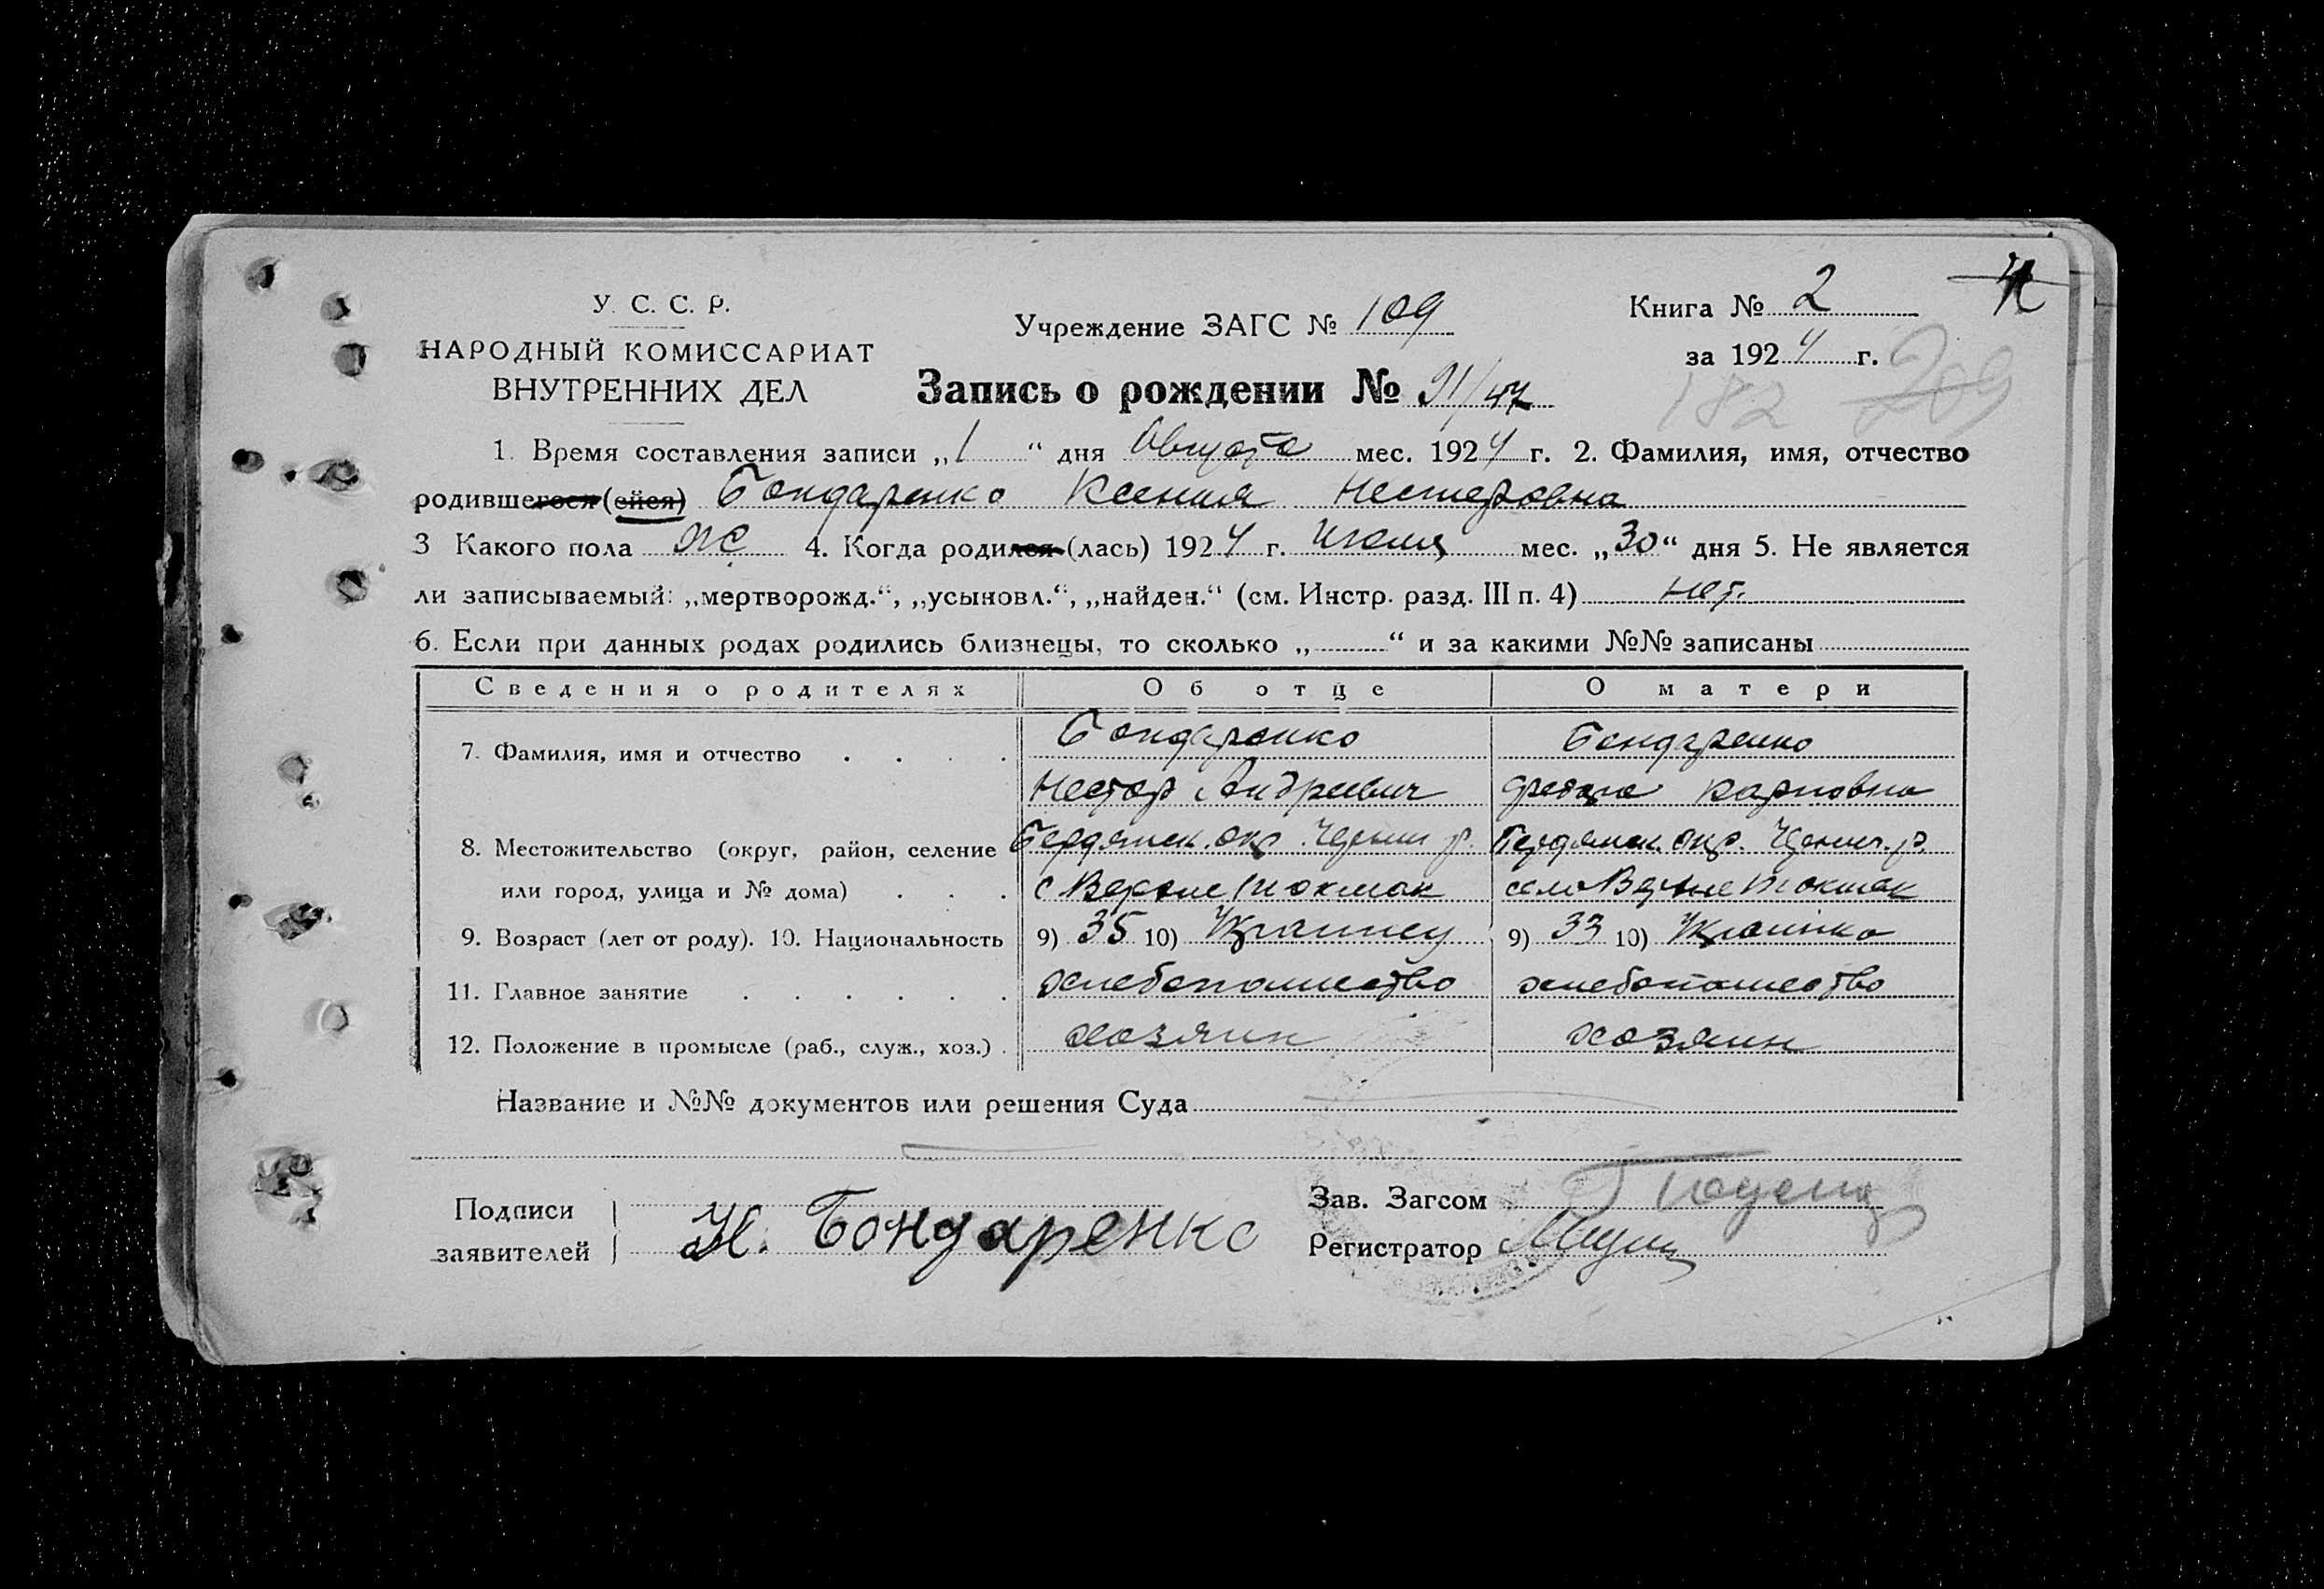 У. С. С. Р.
НАРОДНЫЙ КОМИССАРИАТ
ВНУТРЕННИХ ДЕЛ
Учреждение ЗАГС № 109
Книга № 2
за 1924 г.
182 209
Запись о рождении № 91/47
1. Время составления записи „1“ дня Августа мес. 1924 г. 2. Фамилия, имя, отчество
родившегося (ейся) Бондаренко Ксения Нестеровна
3 Какого пола Ж 4. Когда родился (лась) 1924 г. Июля мес. „30“ дня 5. Не является
ли записываемый: „мертворожд.“, „усыновл.“, „найден.“ (см. Инстр. разд. III п. 4) нет.
6. Если при данных родах родились близнецы, то сколько „ “ и за какими №№ записаны
Сведения о родителях Об отце О матери
7. Фамилия, имя и отчество Бондаренко Бондаренко
Нестор Андреевич Карповна
8. Местожительство (округ, район, селение Бердянск. окр. р. Бердянск. окр. р.
или город, улица и № дома) с Верхне Токмак село Верхне Токмак
9. Возраст (лет от роду). 10. Национальность 9) 35 10) Украинец 9) 33 10) Украінка
11. Главное занятие хлебопашество хлебопашество
12. Положение в промысле (раб., служ., хоз.) хозяин хозяин
Название и №№ документов или решения Суда
Подписи
заявителей Н. Бондаренко
Зав. Загсом
Регистратор